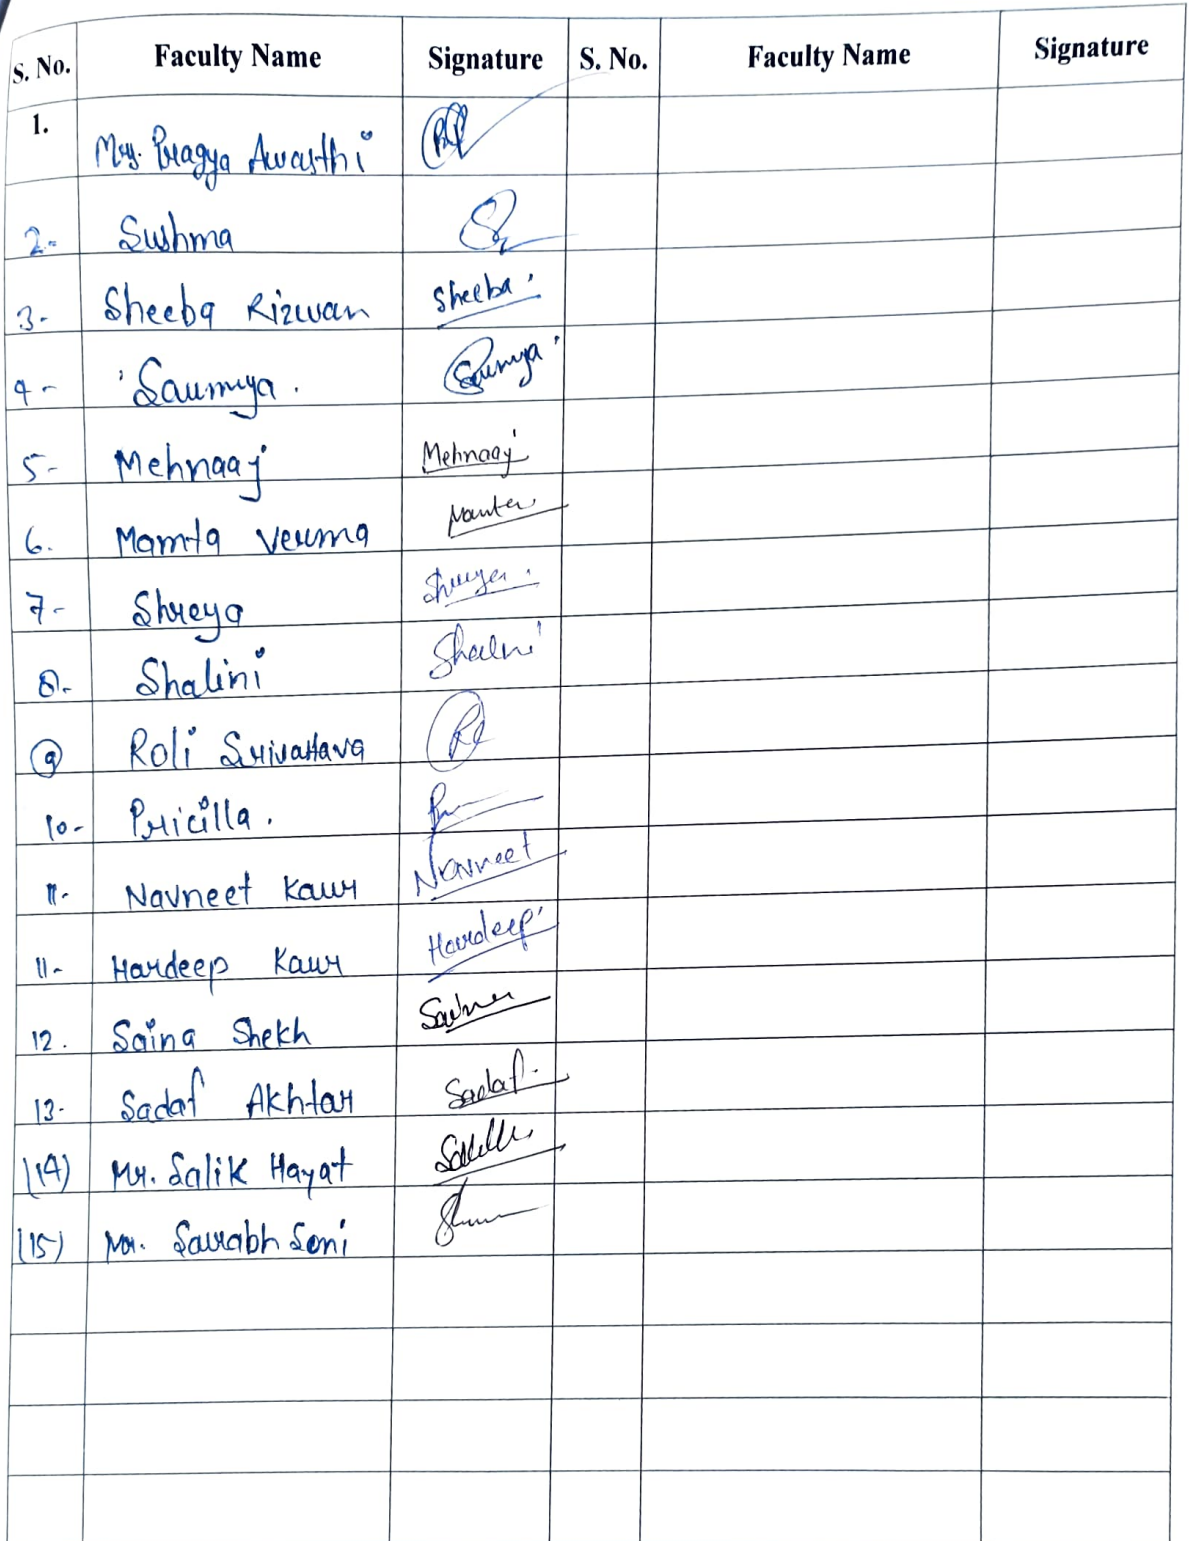 S. No. Faculty Name Signature S. No. Faculty Name Signature
1. Mrs. Pragya Awasthi
2- Sushma
3- Sheeba Rizwan Sheeba
4- Saumya. Saumya
5- Mehnaaj Mehnaaj
6. Mamta Verma
7- Shreya Shreya
8- Shalini Shalini
9 Roli Srivastava
10- Pricilla.
11- Navneet Kaur Navneet
11- Hardeep Kaur Hardeep
12. Saina Shekh
13- Sadaf Akhtar Sadaf
(14) Mr. Salik Hayat
(15) Mr. Saurabh Soni